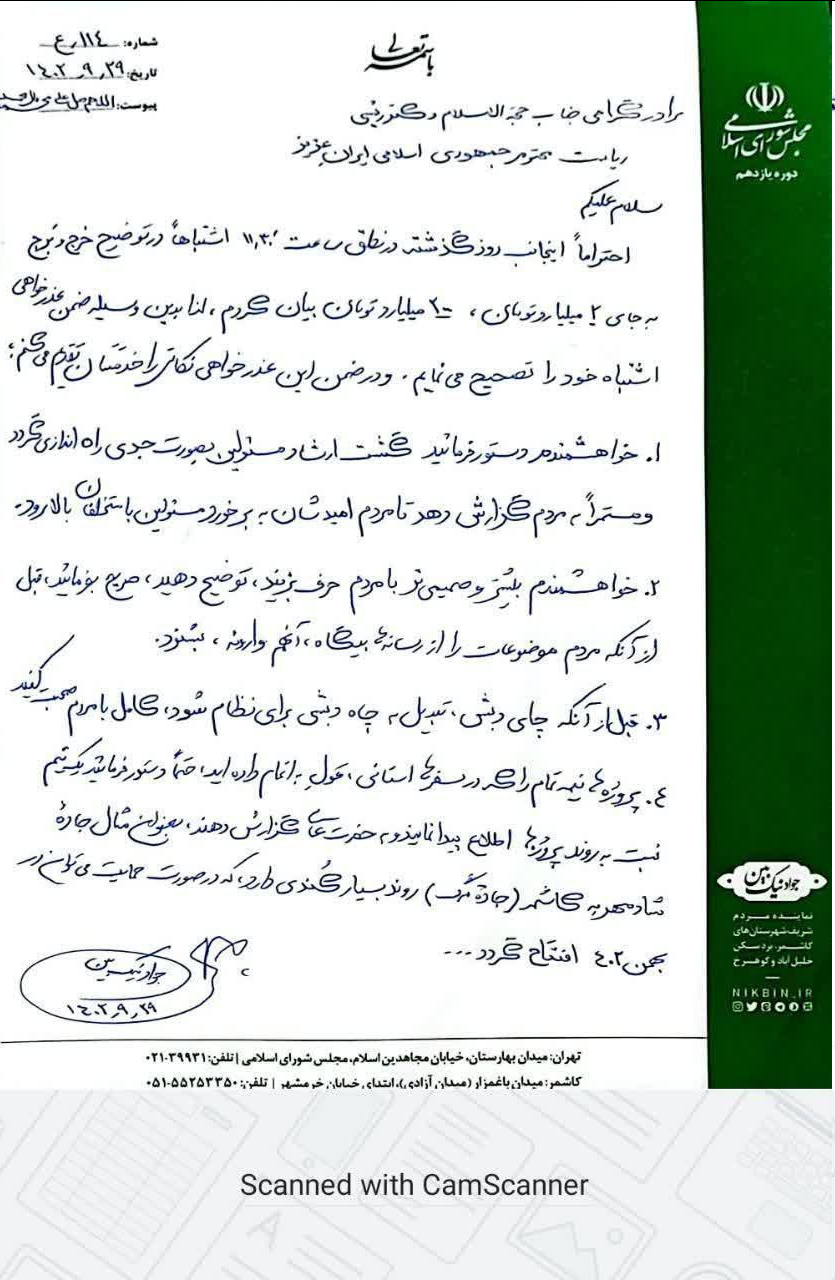 باسمه تعالی
شماره: ۱۱۴رع
تاریخ: ۱۴۰۲٫۹٫۲۹
پیوست: اللهم صل علی محمد و آل محمد
مجلس شورای اسلامی
دوره یازدهم
برادر گرامی جناب حجة الاسلام دکتر رئیسی
ریاست محترم جمهوری اسلامی ایران عزیز
سلام علیکم
احتراماً اینجانب روز گذشته در نطق ساعت ۱۱٫۳۰ اشتباهاً در توضیح خرج و برج
به جای ۲ میلیارد تومان، ۲۰۰ میلیارد تومان بیان کردم، لذا بدین وسیله ضمن عذرخواهی
اشتباه خود را تصحیح می نمایم. و در ضمن این عذرخواهی نکاتی را خدمتتان تقدیم می کنم:
۱. خواهشمندم دستور فرمائید گشت ارشاد مسئولین بصورت جدی راه اندازی گردد
و مستمراً به مردم گزارش دهد تا مردم امیدشان به برخورد مسئولین با متخلفان بالا رود.
۲. خواهشمندم بیشتر و صمیمی تر با مردم حرف بزنید، توضیح دهید، صریح بفرمائید، قبل
از آنکه مردم موضوعات را از رسانه های بیگانه، آنهم وارونه، بشنود.
۳. قبل از آنکه چای دبش، تبدیل به چاه دبشی برای نظام شود، کامل با مردم صحبت کنید
۴. پروژه های نیمه تمام را که در سفرهای استانی، قول به اتمام داده اید، حتماً دستور فرمائید یک تیم
نسبت به روند پروژه ها اطلاع پیدا نمایند و به حضرت عالی گزارش دهند، بعنوان مثال جادهٔ
شادمهر به کاشمر (جادهٔ مرگ) روند بسیار کُندی دارد، که در صورت حمایت می توان در
بهمن ۴۰۲ افتتاح گردد ...
جواد نیک بین
۱۴۰۲٫۹٫۲۹
جواد نیک بین
نماینده مردم
شریف شهرستان های
کاشمر، بردسکن
خلیل آباد و کوهسرخ
NIKBIN_IR
تهران: میدان بهارستان، خیابان مجاهدین اسلام، مجلس شورای اسلامی | تلفن: ۳۹۹۳۱-۰۲۱
کاشمر: میدان باغمزار (میدان آزادی)، ابتدای خیابان خرمشهر | تلفن: ۵۵۲۵۳۳۵۰-۰۵۱
Scanned with CamScanner